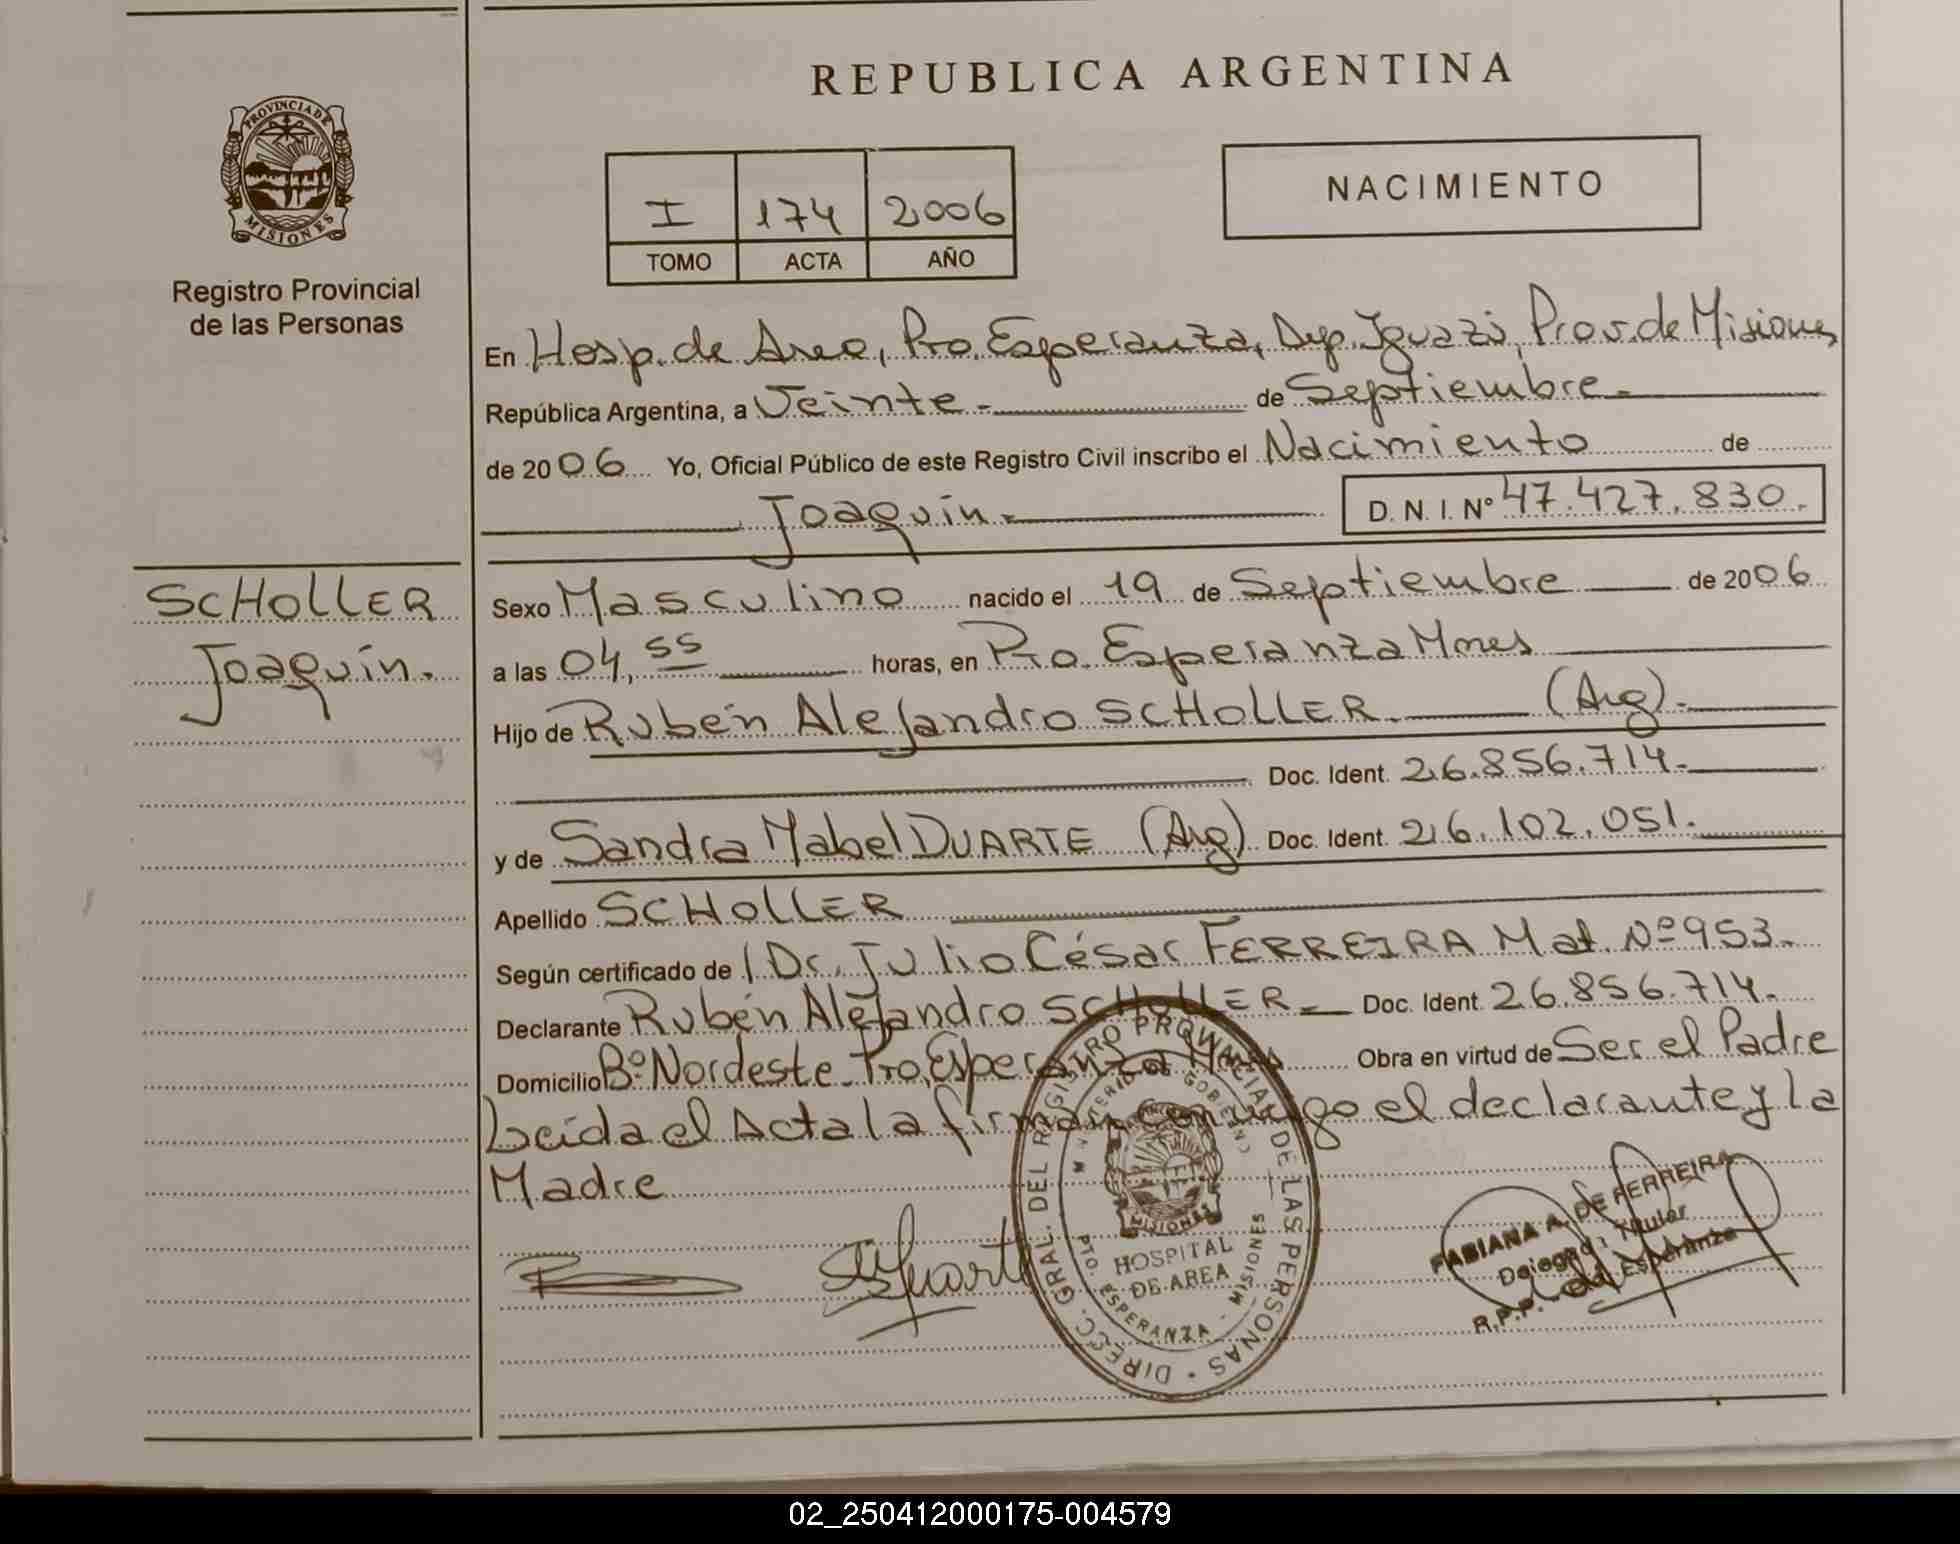 REPUBLICA ARGENTINA
PROVINCIA DE
MISIONES
Registro Provincial
de las Personas
I 174 2006
TOMO ACTA AÑO
NACIMIENTO
En Hosp. de Area, Pto. Esperanza, Dep. Iguazú, Prov. de Misiones
República Argentina, a Veinte.- de Septiembre.-
de 2006 Yo, Oficial Público de este Registro Civil inscribo el Nacimiento de
Joaquín.- D. N. I. N° 47.427.830.
SCHOLLER
Joaquín.
Sexo Masculino nacido el 19 de Septiembre de 2006
a las 04,55 horas, en Pto. Esperanza Mnes
Hijo de Rubén Alejandro SCHOLLER. (Arg).-
Doc. Ident. 26.856.714.-
y de Sandra Mabel DUARTE (Arg) Doc. Ident. 26.102.051.
Apellido SCHOLLER
Según certificado de l Dr. Julio César FERREIRA Mat. Nº 953.-
Declarante Rubén Alejandro SCHOLLER.- Doc. Ident. 26.856.714.-
Domicilio Bº Nordeste Pto. Esperanza Obra en virtud de Ser el Padre
Leída el Acta la firman conmigo el declarante y la
Madre
DIREC. GRAL. DEL REGISTRO PROVINCIAL DE LAS PERSONAS
MINISTERIO DE GOBIERNO
MISIONES
HOSPITAL
DE AREA
PTO. ESPERANZA - MISIONES
FABIANA A. DE FERREIRA
Titular
R.P.P. Esperanza
02_250412000175-004579